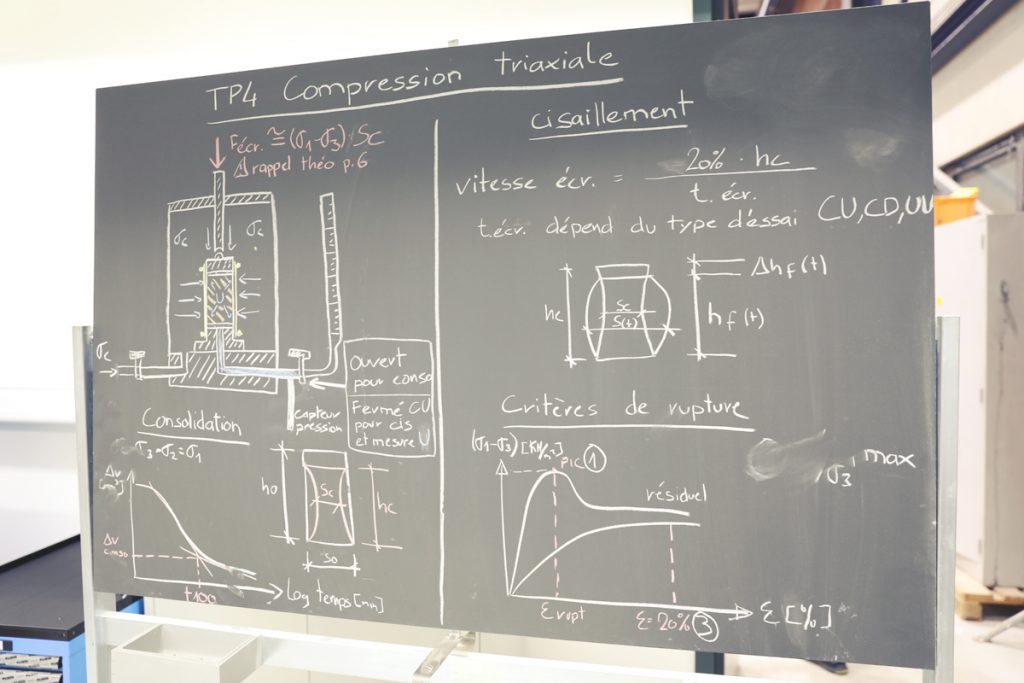 TP4 Compression triaxiale
Fécr. ≅ (σ1-σ3)·Sc
⚠ rappel théo p.6
σc
σc
σc
Ouvert
pour conso
Fermé CU
pour cis
et mesure U
capteur
pression
Consolidation
σ3=σ2=σ1
Δv
Δv
conso
t100
log temps [min]
h0
Sc
hc
S0
cisaillement
vitesse écr. = 20% · hc / t. écr.
t.écr. dépend du type d'éssai CU, CD, UU
hc
Sc
S(t)
Δhf(t)
hf(t)
Critères de rupture
(σ1-σ3)
pic ①
résiduel
Ɛrupt
Ɛ=20% ③
Ɛ [%]
σ3' max